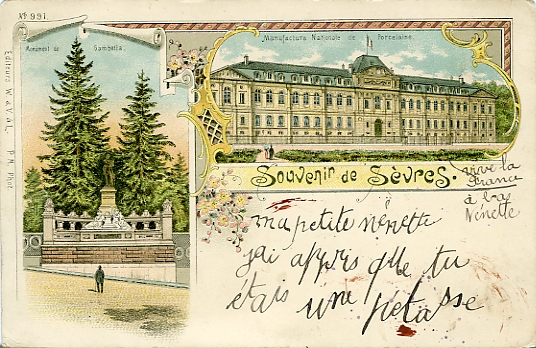 No 991.
Monument de Gambetta.
Manufacture Nationale de Porcelaine.
Editeurs W. & V. à L. P. N. Phot.
Souvenir de Sèvres.
vive la
France
à bas
Nénette
ma petite nénette
jai appris que tu
étais une pétasse